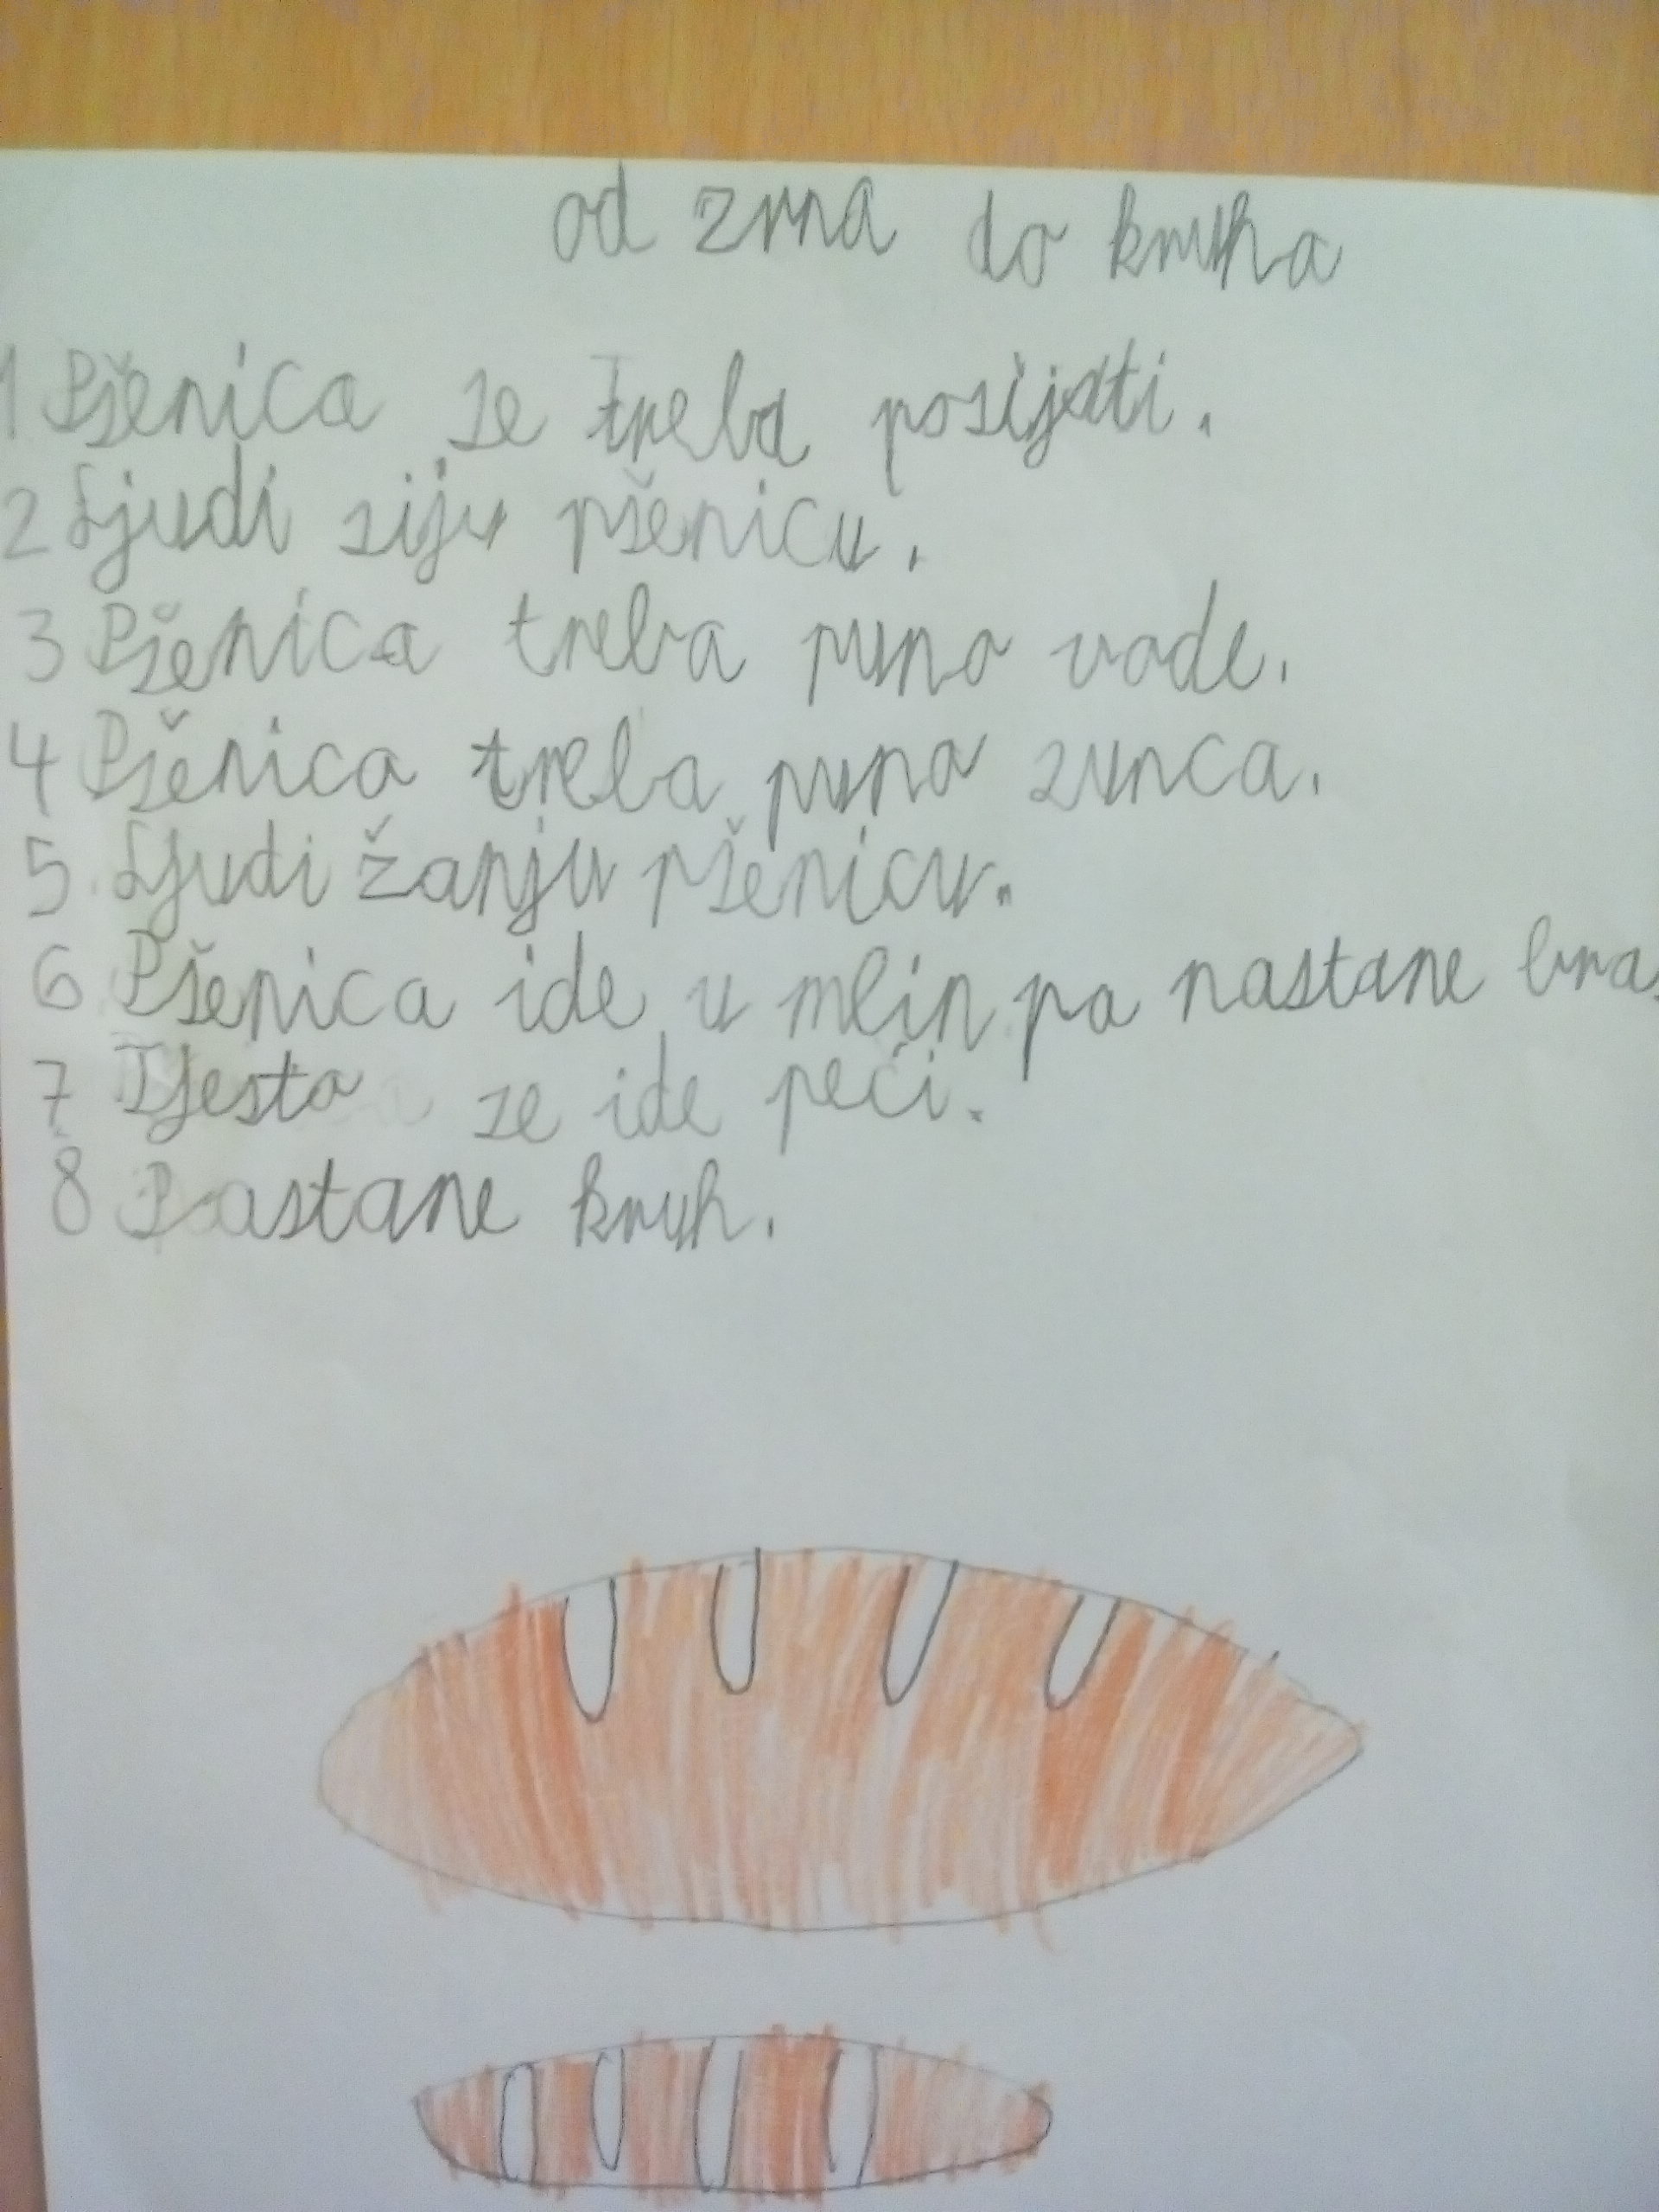 od zrna do kruha
1 Pšenica se treba posijati.
2 Ljudi siju pšenicu.
3 Pšenica treba puno vode.
4 Pšenica treba puno sunca.
5 Ljudi žanju pšenicu.
6 Pšenica ide u mlin pa nastane bras
7 Tjesto se ide peči.
8 kruh.